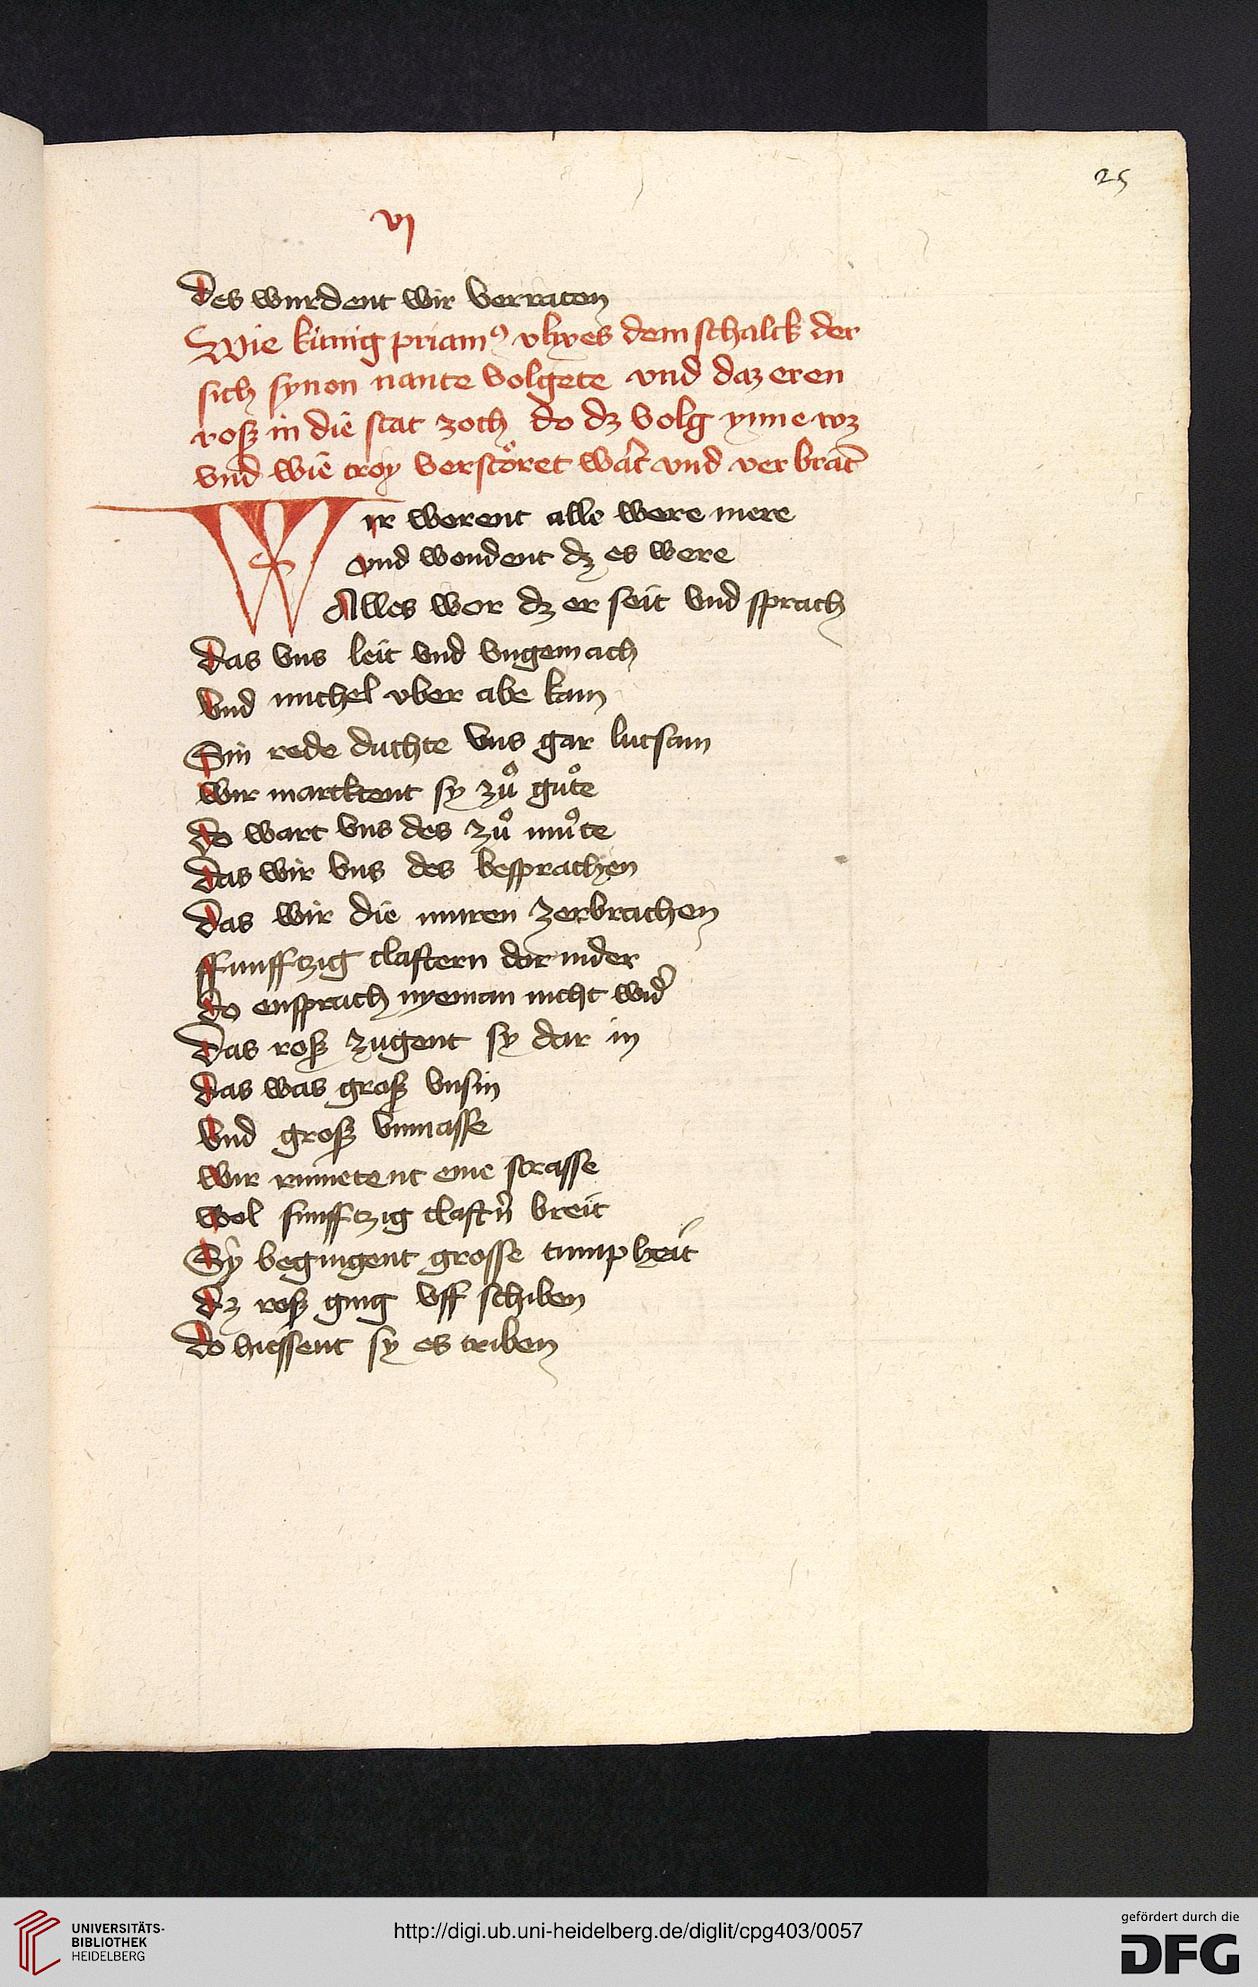 25
vj
Des wurdent wir verraten
Wie kúnig priamꝰ vlixes dem schalck der
sich synon nante volgete vnd daz eren
rosz in die stat zoch do dz volg ynne wz
vnd wie troy verstöret wart vnd verbrāt
Wir werent alle were mere
vnd wondent dz es were
Alles wor dz er seit vnd sprach
Das vns leit vnd vngemach
Vnd michel vber abe kam
Sin rede duchte vns gar lutsam
Wir marcktent sy zuͦ guͦte
Do wart vns des zuͦ muͦte
Das wir vns des besprachen
Das wir die muren zerbrachen
Funfftzig claftern dar nider
Do ensprach nyeman nicht widˀ
Das rosz zugent sy dar in
Das was grosz vnsin
Vnd grosz vnmasse
Wir rumetent eine strasse
Wol funfftzig claftn̄ breit
Sy begingent grosse tumpheit
Dz rosz ging vff schiben
Do hiessent sy es triben
UNIVERSITÄTS-
BIBLIOTHEK
HEIDELBERG
http://digi.ub.uni-heidelberg.de/diglit/cpg403/0057
gefördert durch die
DFG